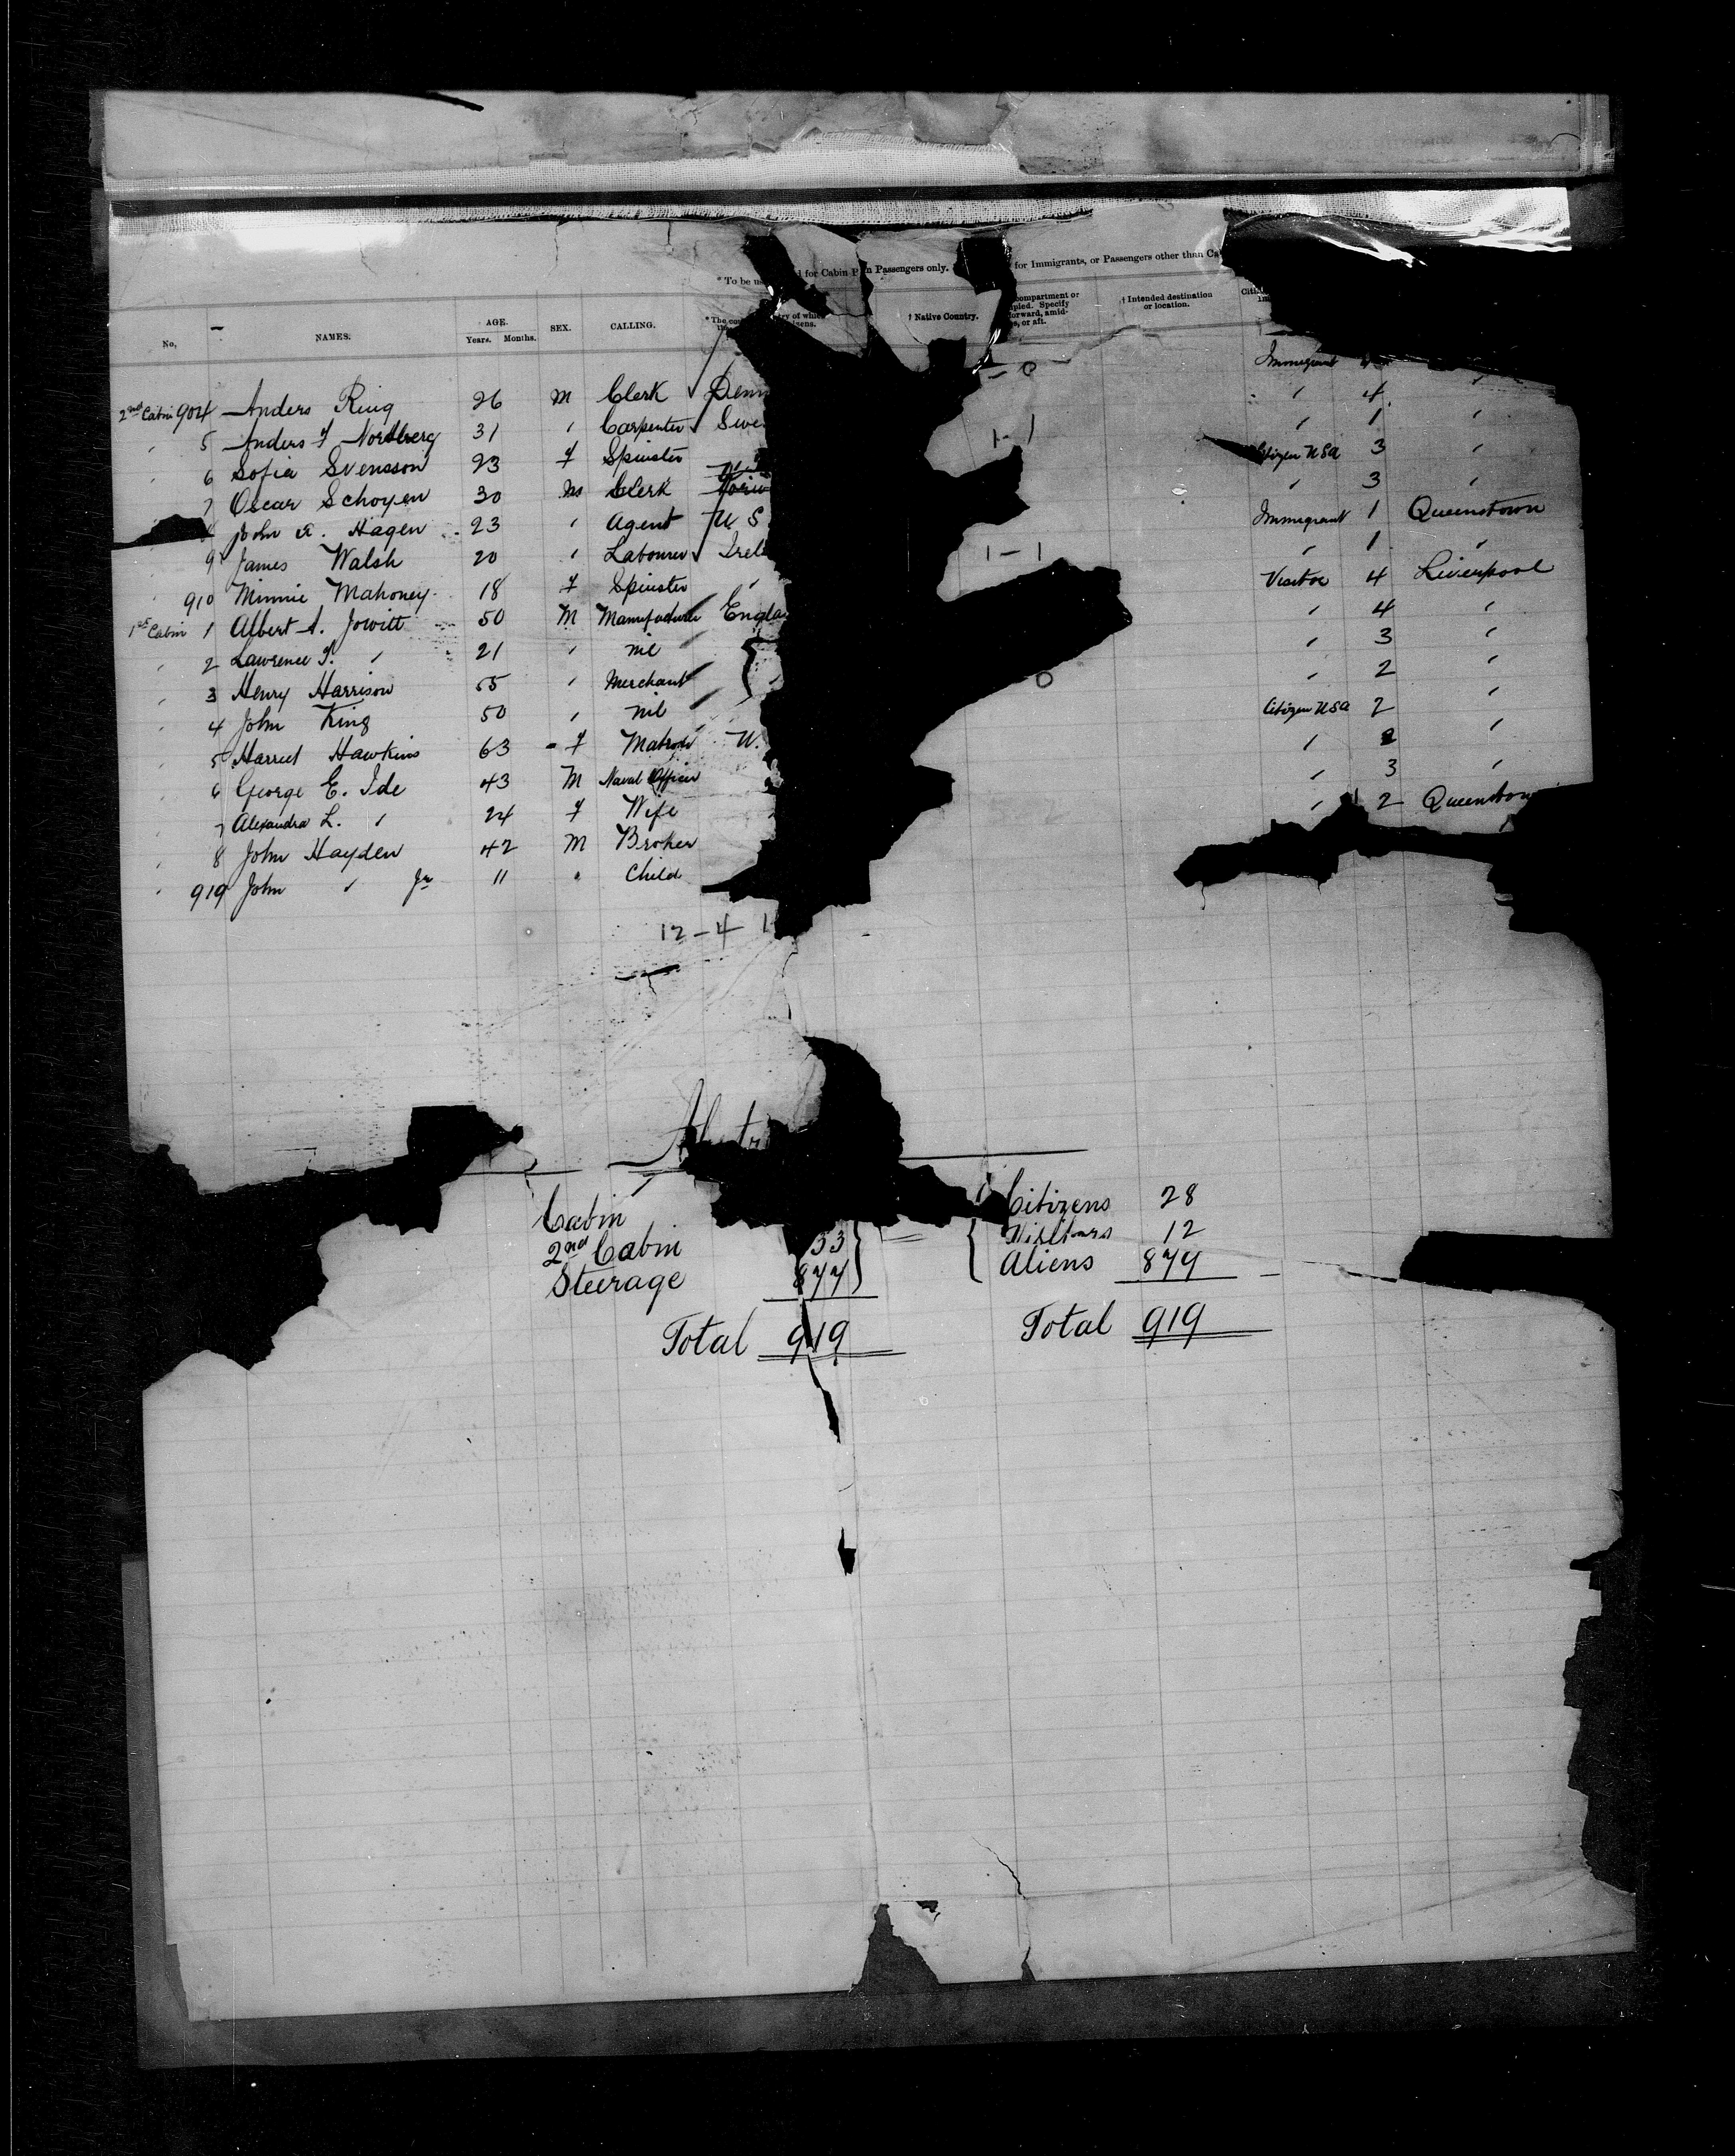 for Cabin Passengers only. for Immigrants, or Passengers other than
* To be
No. NAMES. AGE. Years. Months. SEX. CALLING. † Native Country. compartment or Specify forward, amid- or aft. † Intended destination or location.
2nd Cabin 904 Anders Ring 26 M Clerk Immigrant
" 5 Anders F Nordberg 31 " Carpenter " 4 "
" 6 Sofia Svensson 23 F Spinster " 1 "
" 7 Oscar Schoyen 30 M Clerk Citizen USA 3 "
John A. Hagen 23 " Agent U S " 3 "
" 9 James Walsh 20 " Labourer Immigrant 1 Queenstown
" 910 Minnie Mahoney 18 F Spinster " " 1 "
1st Cabin 1 Albert A. Jowitt 50 M Manufacturer Visitor 4 Liverpool
" 2 Lawrence " 21 " nil " 4 "
" 3 Henry Harrison 55 " Merchant " 3 "
" 4 John King 50 " nil " 2 "
" 5 Harriet Hawkins 63 F Matron Citizen USA 2 "
" 6 George E. Ide 43 M Naval Officer " 2 "
" 7 Alexandra L. " 24 F Wife " 3 "
" 8 John Hayden 42 M Broker " 2 Queenstown
" 919 John " Jr 11 " Child
1 - 0
1 - 1
1 - 1
0
12 - 4 1
Cabin Citizens 28
2nd Cabin 33 Visitors 12
Steerage 877 Aliens 879
Total 919 Total 919